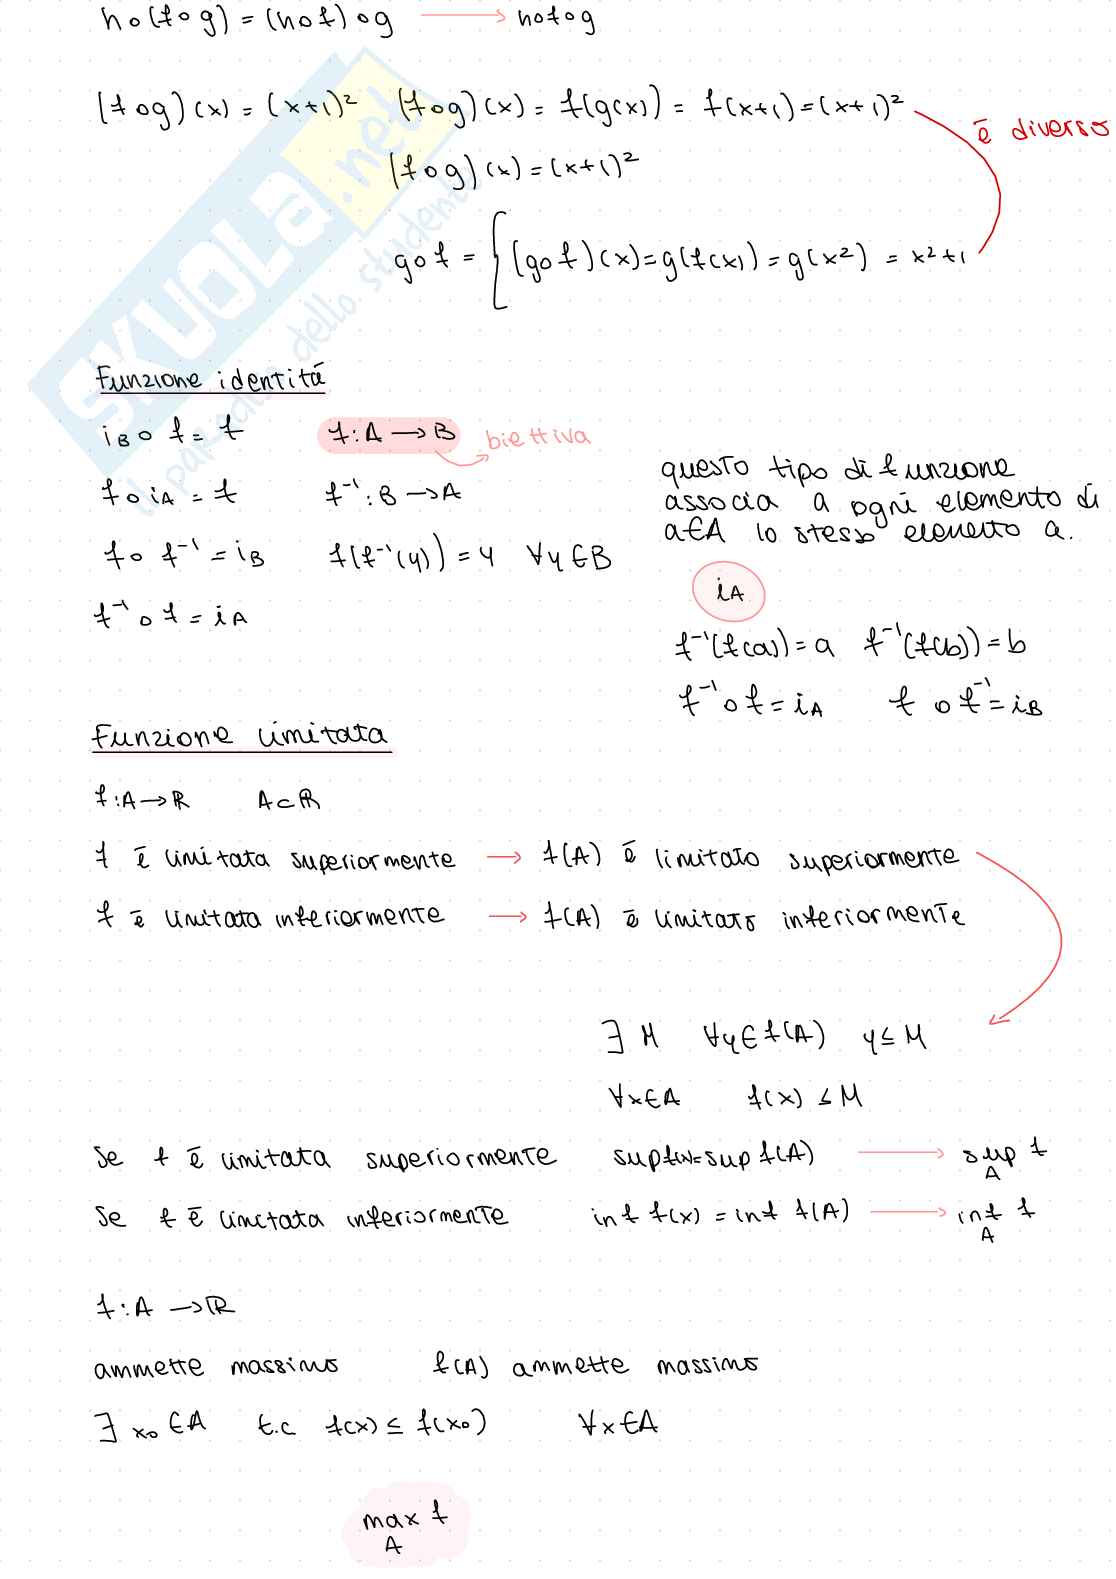 ho(fog) = (hof) og → hofog
(fog)(x) = (x+1)² (fog)(x) = f(g(x)) = f(x+1) = (x+1)²
è diverso
(fog)(x) = (x+1)²
gof = { (gof)(x) = g(f(x)) = g(x²) = x²+1
SKUOLA.net
il paradiso dello studente
Funzione identità
iB o f = f f: A → B biettiva
questo tipo di funzione
f o iA = f f⁻¹: B → A
associa a ogni elemento di
a∈A lo stesso elemento a.
f o f⁻¹ = iB f(f⁻¹(y)) = y ∀y∈B
iA
f⁻¹ o f = iA
f⁻¹(f(a)) = a f⁻¹(f(b)) = b
f⁻¹ o f = iA f o f⁻¹ = iB
Funzione limitata
f: A → ℝ A⊂ℝ
f è limitata superiormente → f(A) è limitato superiormente
f è limitata inferiormente → f(A) è limitato inferiormente
∃ M ∀y∈f(A) y ≤ M
∀x∈A f(x) ≤ M
Se f è limitata superiormente sup f(x) = sup f(A) → sup f
A
Se f è limitata inferiormente inf f(x) = inf f(A) → inf f
A
f: A → ℝ
ammette massimo f(A) ammette massimo
∃ x₀∈A t.c f(x) ≤ f(x₀) ∀x∈A
max f
A